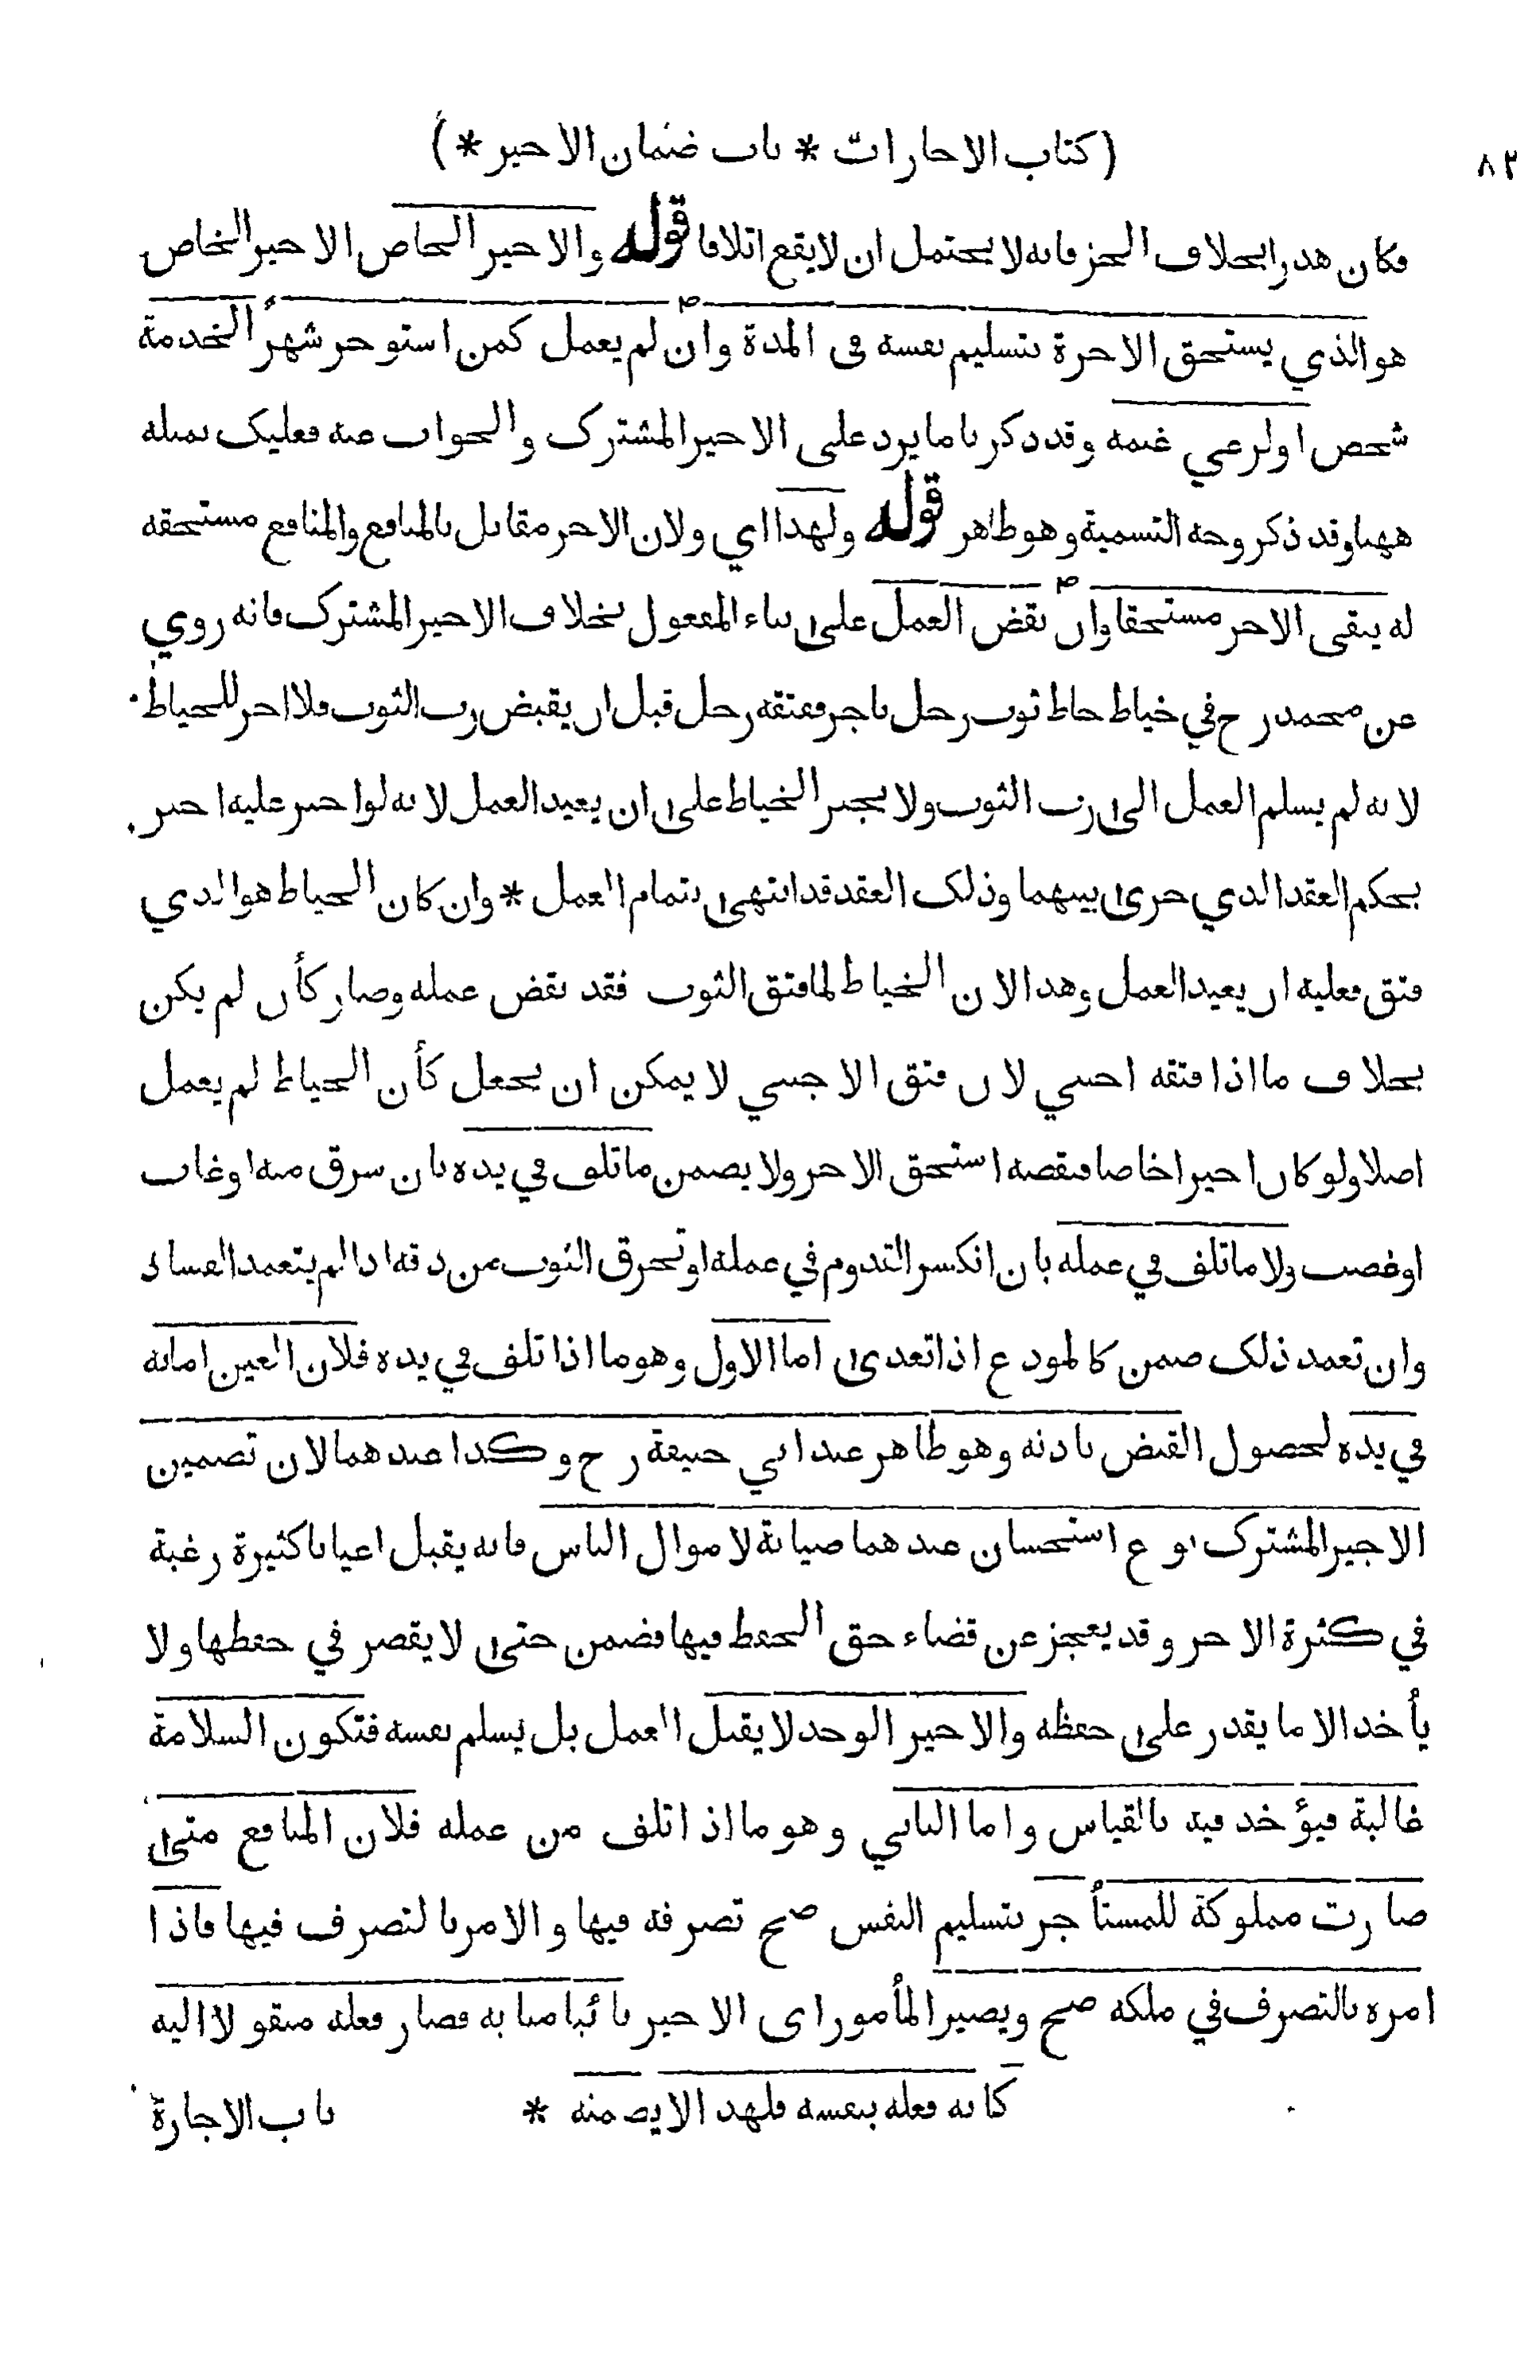 ٨٢
( كتاب الاجارات * باب ضمان الاجير * )
فكان هدرا بخلاف الحز فانه لا يحتمل ان لا يقع اتلافا قوله والاجير الخاص الاجير الخاص
هو الذي يستحق الاجرة بتسليم نفسه في المدة وان لم يعمل كمن استوجر شهرا لخدمة
شخص او لرعي غنمه وقد ذكرنا ما يرد على الاجير المشترك والجواب عنه فعليك بمثله
ههنا وقد ذكر وجه التسمية وهو ظاهر قوله ولهذا اي ولان الاجر مقابل بالمنافع والمنافع مستحقه
له يبقى الاجر مستحقا وان نقض العمل على بناء المفعول بخلاف الاجير المشترك فانه روي
عن محمد رح في خياط خاط ثوب رجل باجر ففتقه رجل قبل ان يقبض رب الثوب فلا اجر للخياط
لانه لم يسلم العمل الى رب الثوب ولا يجبر الخياط على ان يعيد العمل لانه لو اجبر عليه اجبر
بحكم العقد الذي جرى بينهما وذلك العقد قد انتهى بتمام العمل * وان كان الخياط هو الذي
فتق فعليه ان يعيد العمل وهذا لان الخياط لما فتق الثوب فقد نقض عمله وصار كأن لم يكن
بخلاف ما اذا فتقه اجنبي لان فتق الاجنبي لا يمكن ان يجعل كأن الخياط لم يعمل
اصلا ولو كان اجيرا خاصا فنقضه استحق الاجر ولا يضمن ما تلف في يده بان سرق منه او غاب
او غصب ولا ما تلف في عمله بان انكسر القدوم في عمله او تحرق الثوب من دقه اذا لم يتعمد الفساد
وان تعمد ذلك ضمن كالمودع اذا تعدى اما الاول وهو ما اذا تلف في يده فلان العين امانه
في يده لحصول القبض باذنه وهو ظاهر عند ابي حنيفة رح وكذا عندهما لان تضمين
الاجير المشترك نوع استحسان عندهما صيانة لاموال الناس فانه يقبل اعيانا كثيرة رغبة
في كثرة الاجر وقد يعجز عن قضاء حق الحفظ فيها فضمن حتى لا يقصر في حفظها ولا
يأخذ الا ما يقدر على حفظه والاجير الوحد لا يقبل العمل بل يسلم نفسه فتكون السلامة
غالبة فيؤخذ فيه بالقياس واما الثاني وهو ما اذا تلف من عمله فلان المنافع متى
صارت مملوكة للمستأجر بتسليم النفس صح تصرفه فيها والامر بالتصرف فيها فاذا
امره بالتصرف في ملكه صح ويصير المأمور اى الاجير نائبا منابه فصار فعله منقولا اليه
كانه فعله بنفسه فلهذا لا يضمنه *
باب الاجارة